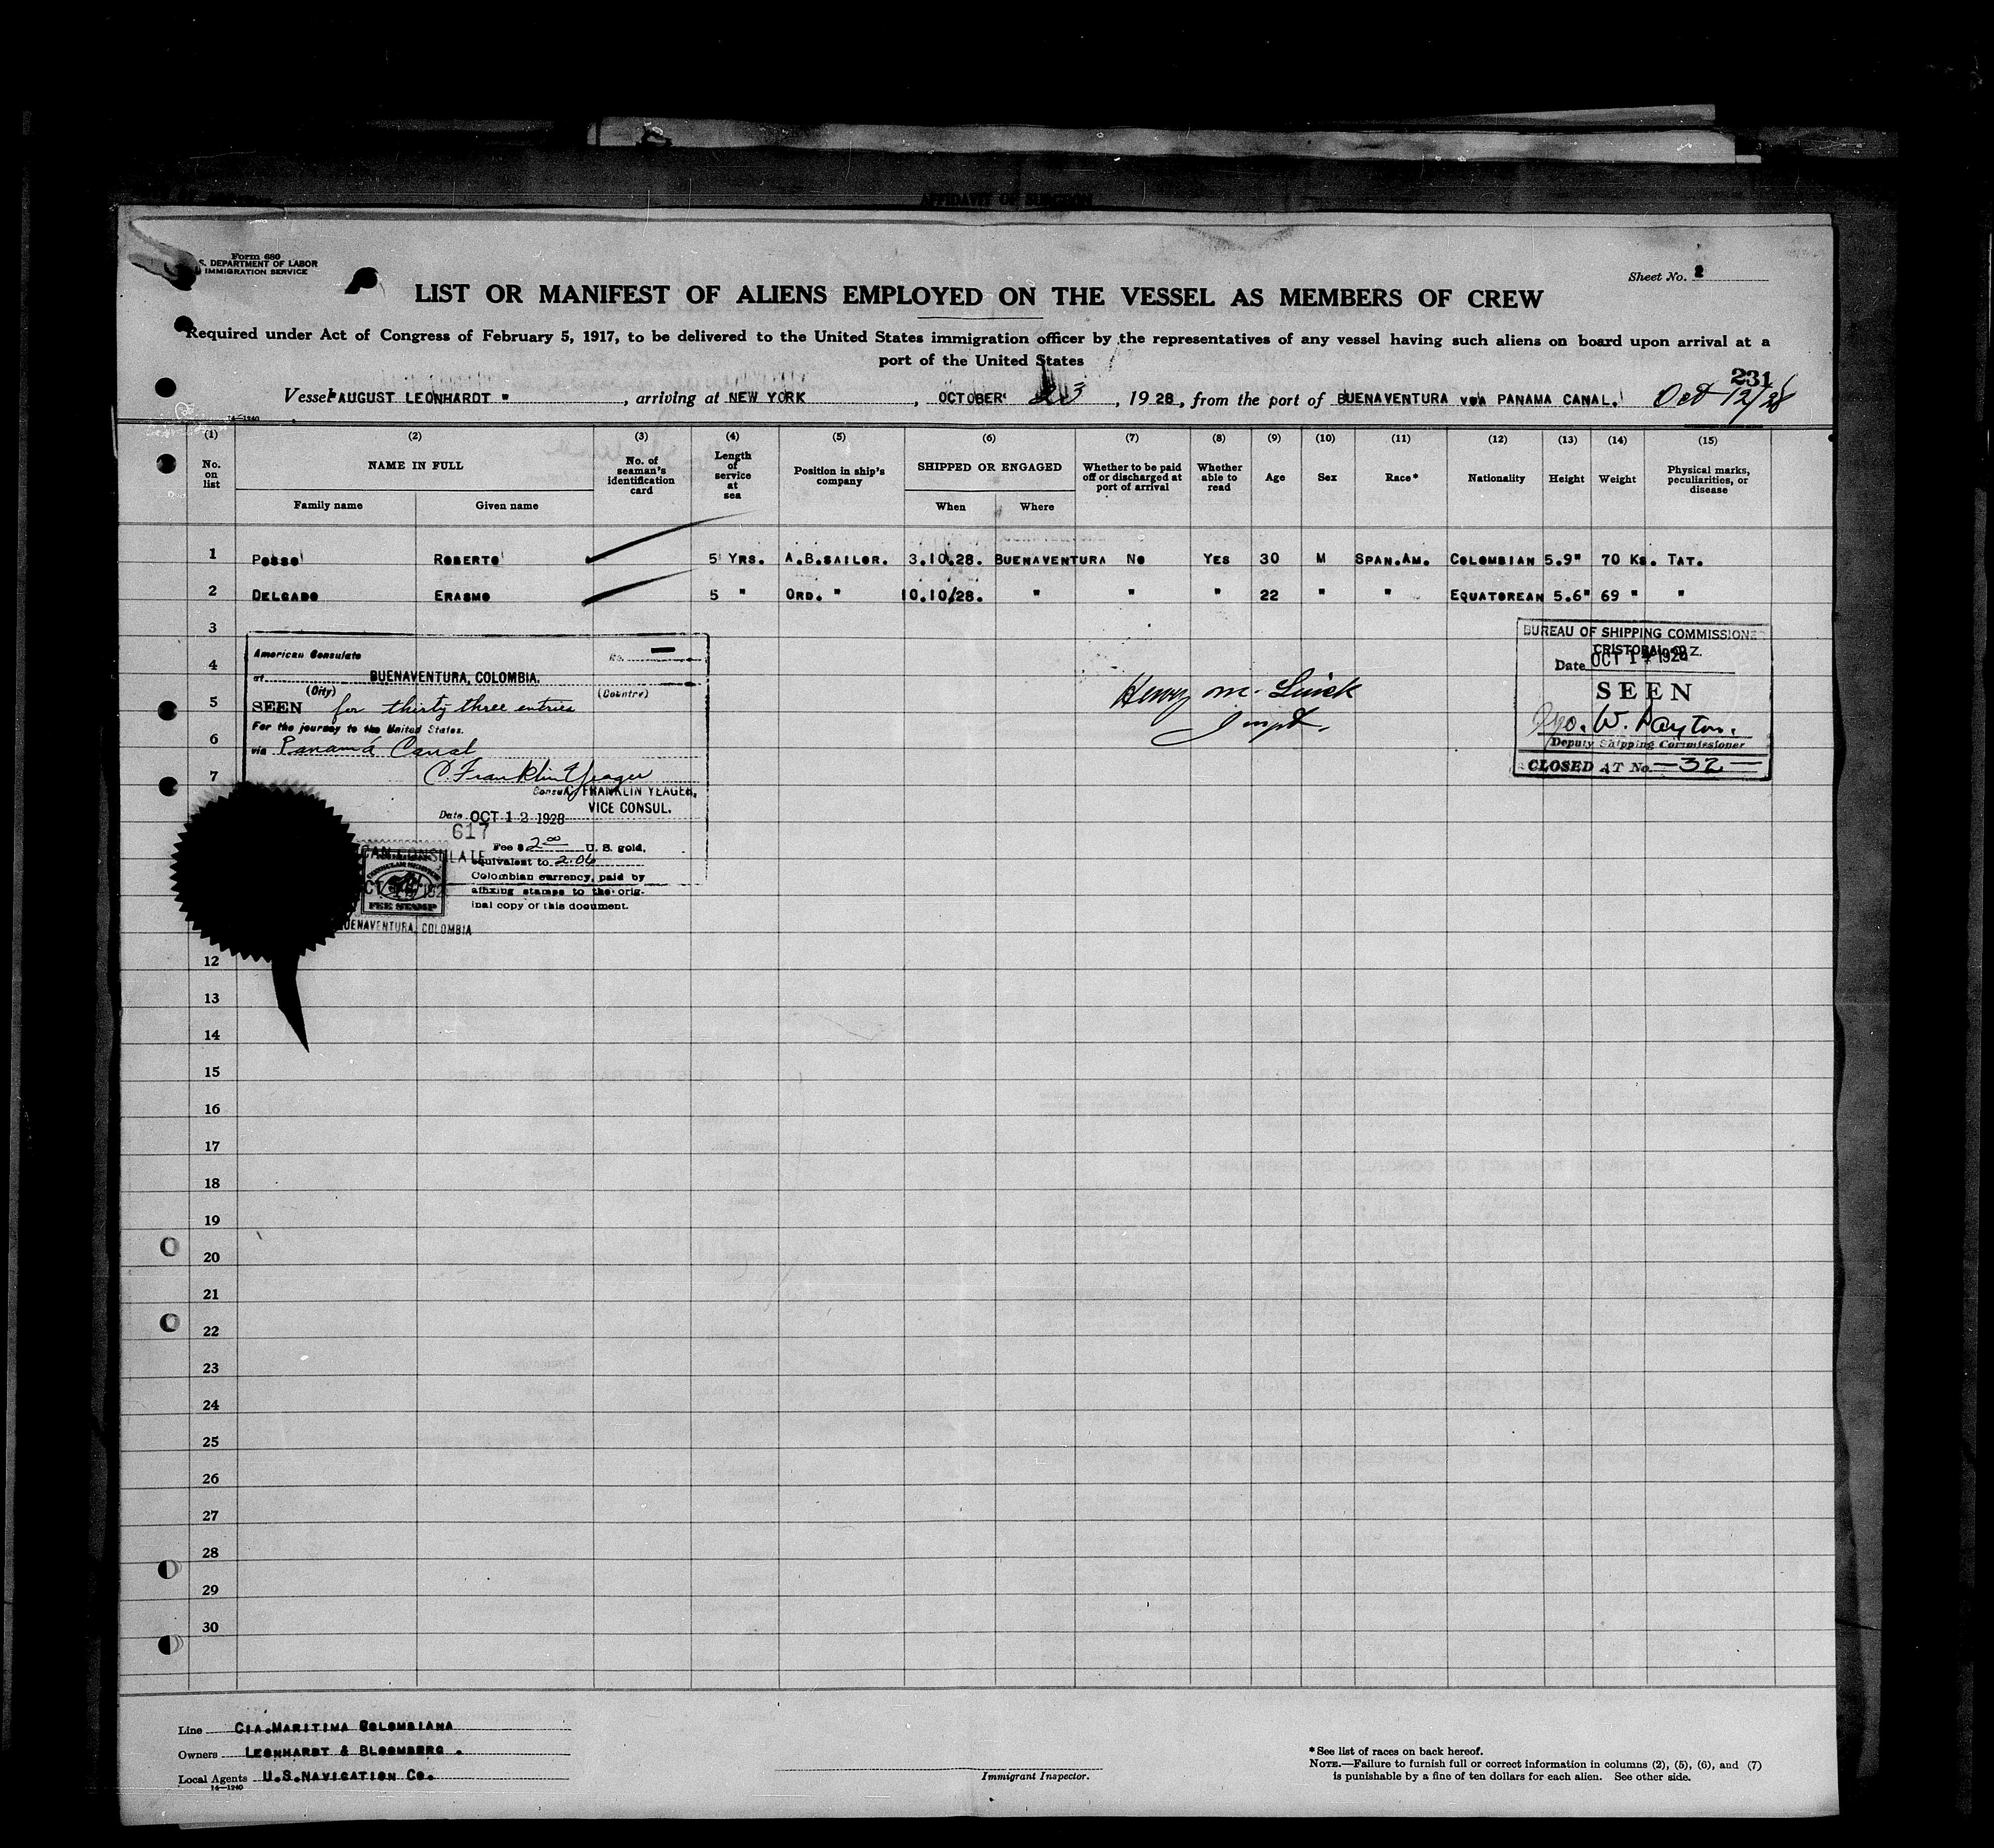 AFFIDAVIT OF SURGEON
Form 680
S. DEPARTMENT OF LABOR
IMMIGRATION SERVICE
Sheet No. 2
LIST OR MANIFEST OF ALIENS EMPLOYED ON THE VESSEL AS MEMBERS OF CREW
Required under Act of Congress of February 5, 1917, to be delivered to the United States immigration officer by the representatives of any vessel having such aliens on board upon arrival at a
port of the United States
231
Vessel "AUGUST LEONHARDT", arriving at NEW YORK, OCTOBER 23, 1928, from the port of BUENAVENTURA VIA PANAMA CANAL. Oct 12/28
14—1240
(1) (2) (3) (4) (5) (6) (7) (8) (9) (10) (11) (12) (13) (14) (15)
No. on list NAME IN FULL No. of seaman's identification card Length of service at sea Position in ship's company SHIPPED OR ENGAGED Whether to be paid off or discharged at port of arrival Whether able to read Age Sex Race* Nationality Height Weight Physical marks, peculiarities, or disease
Family name Given name When Where
1 POSSO ROBERTO 5 YRS. A.B.SAILOR. 3.10.28. BUENAVENTURA NO YES 30 M SPAN.AM. COLOMBIAN 5.9" 70 KS. TAT.
2 DELGADO ERASMO 5 " ORD. " 10.10/28. " " " 22 " " EQUATOREAN 5.6" 69 " "
3
4
5
6
7
American Consulate
No.
at BUENAVENTURA, COLOMBIA.
(City) (Country)
SEEN for thirty three entries
For the journey to the United States.
via Panamá Canal
C. Franklin Yeager
Consul C. FRANKLIN YEAGER,
VICE CONSUL.
Date OCT 12 1928
617
Fee $ 2.00 U. S. gold,
equivalent to 2.06
Colombian currency, paid by
affixing stamps to the orig-
inal copy of this document.
CAN CONSULATE
FEE STAMP
BUENAVENTURA, COLOMBIA
Henry M.
Inspt.
BUREAU OF SHIPPING COMMISSIONE
CRISTOBAL, C.Z.
Date OCT 17 1928
SEEN
Geo. W. Dayton.
Deputy Shipping Commissioner
CLOSED AT No. —32—
12
13
14
15
16
17
18
19
20
21
22
23
24
25
26
27
28
29
30
Line CIA.MARITIMA COLOMBIANA
Owners LEONHARDT & BLOOMBERG.
Local Agents U.S.NAVIGATION CO.
14—1240
Immigrant Inspector.
*See list of races on back hereof.
NOTE.—Failure to furnish full or correct information in columns (2), (5), (6), and (7)
is punishable by a fine of ten dollars for each alien. See other side.